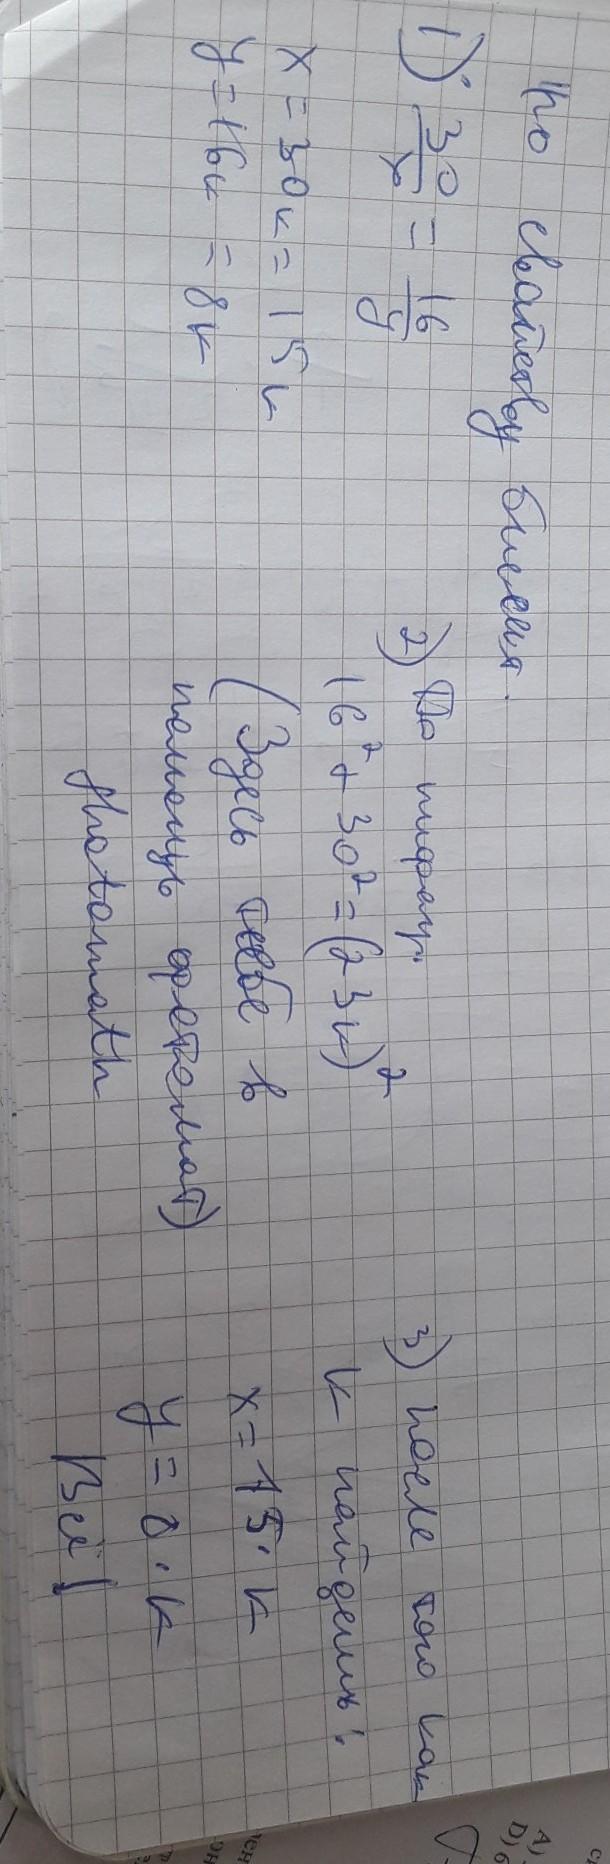 По свойству бисекш.
1) 30/x = 16/y
x = 30к = 15к
y = 16к = 8к
2) По пифагр.
16² + 30² = (23к)²
(Здесь тебе в
помощь фотомат)
photomath
3) после того как
к найдешь:
x = 15 · к
y = 8 · к
Всё!